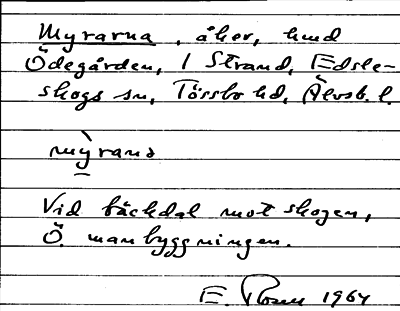 Myrarna, åker, hmd
Ödegården, 1 Strand, Edsle-
skogs sn, Tössbo hd, Älvsb. l.
mỳrana
Vid bäckdal mot skogen,
Ö. manbyggningen.
E. Rosen 1964